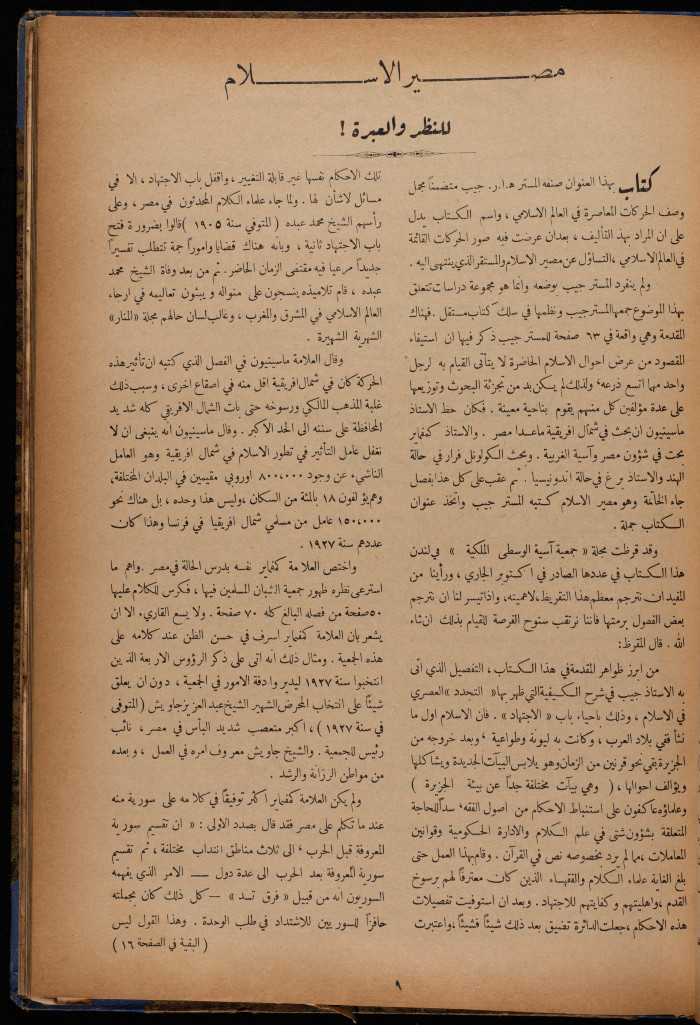 مصير الاسلام
للنظر والعبرة !
كتاب بهذا العنوان صنفه المستر ه.ا.ر. جيب متضمناً مجمل
وصف الحركات المعاصرة في العالم الاسلامي ، واسم الكتاب يدل
على ان المراد بهذا التأليف ، بعد ان عرضت فيه صور الحركات القائمة
في العالم الاسلامي ، التساؤل عن مصير الاسلام والمستقر الذي ينتهي اليه .
ولم ينفرد المستر جيب بوضعه وانما هو مجموعة دراسات تتعلق
بهذا الموضوع جمعها المستر جيب ونظمها في سلك كتاب مستقل . فهناك
المقدمة وهي واقعة في ٦٣ صفحة للمستر جيب ذكر فيها ان استيفاء
المقصود من عرض احوال الاسلام الحاضرة لا يتأتى القيام به لرجل
واحد مهما اتسع ذرعه ، ولذلك لم يكن بد من تجزئة البحوث وتوزيعها
على عدة مؤلفين كل منهم يقوم بناحية معينة . فكان حظ الاستاذ
ماسينيون ان بحث في شمال افريقية ما عدا مصر . والاستاذ كمفاير
بحث في شؤون مصر وآسية الغربية . وبحث الكولونل فرار في حالة
الهند والاستاذ برغ في حالة اندونيسيا . ثم عقب على كل هذا بفصل
جاء الخاتمة وهو مصير الاسلام كتبه المستر جيب واتخذ عنوان
الكتاب جملة .
وقد قرظت مجلة « جمعية آسية الوسطى الملكية » في لندن
هذا الكتاب في عددها الصادر في اكتوبر الجاري ، ورأينا من
المفيد ان نترجم معظم هذا التقريظ ، لاهميته ، واذا تيسر لنا ان نترجم
بعض الفصول برمتها فاننا نرتقب سنوح الفرصة للقيام بذلك ان شاء
الله . قال المقرظ :
من ابرز ظواهر المقدمة في هذا الكتاب ، التفصيل الذي اتى
به الاستاذ جيب في شرح الكيفية التي ظهر بها « التجدد » العصري
في الاسلام ، وذلك باحياء باب « الاجتهاد » . فان الاسلام اول ما
نشأ ففي بلاد العرب ، وكانت به ليونة وطواعية ، وبعد خروجه من
الجزيرة بقي نحو قرنين من الزمان وهو يلابس البيآت الجديدة ويشاكلها
ويؤالف احوالها ، ( وهي بيآت مختلفة جداً عن بيئة الجزيرة )
وعلماؤه عاكفون على استنباط الاحكام من اصول الفقه ، سداً للحاجة
المتعلقة بشؤون شتى في علم الكلام والادارة الحكومية وقوانين
المعاملات ، مما لم يرد بخصوصه نص في القرآن . وقام بهذا العمل حتى
بلغ الغاية علماء الكلام والفقهاء الذين كان معترفاً لهم برسوخ
القدم ، واهليتهم وكفايتهم للاجتهاد . وبعد ان استوفيت تفصيلات
هذه الاحكام ، جعلت الدائرة تضيق بعد ذلك شيئاً فشيئاً ، واعتبرت
تلك الاحكام نفسها غير قابلة التغيير ، واقفل باب الاجتهاد ، الا في
مسائل لا شأن لها . ولما جاء علماء الكلام المحدثون في مصر ، وعلى
رأسهم الشيخ محمد عبده ( المتوفي سنة ١٩٠٥ ) قالوا بضرورة فتح
باب الاجتهاد ثانية ، وبانه هناك قضايا واموراً جمة تتطلب تفسيراً
جديداً مرعيا فيه مقتضى الزمان الحاضر . ثم من بعد وفاة الشيخ محمد
عبده ، قام تلاميذه ينسجون على منواله ويبثون تعاليمه في ارجاء
العالم الاسلامي في المشرق والمغرب ، وغالب لسان حالهم مجلة «المنار»
الشهرية الشهيرة .
وقال العلامة ماسينيون في الفصل الذي كتبه ان تأثير هذه
الحركة كان في شمال افريقية اقل منه في اصقاع اخرى ، وسبب ذلك
غلبة المذهب المالكي ورسوخه حتى بات الشمال الافريقي كله شديد
المحافظة على سننه الى الحد الاكبر . وقال ماسينيون انه ينبغي ان لا
نغفل عامل التأثير في تطور الاسلام في شمال افريقية وهو العامل
الناشيء عن وجود ٨٠٠،٠٠٠ اوروبي مقيمين في البلدان المختلفة،
وهم يؤلفون ١٨ بالمئة من السكان ، وليس هذا وحده ، بل هناك نحو
١٥٠،٠٠٠ عامل من مسلمي شمال افريقيا في فرنسا وهذا كان
عددهم سنة ١٩٢٧ .
واختص العلامة كمفاير نفسه بدرس الحالة في مصر . واهم ما
استرعى نظره ظهور جمعية الشبان المسلمين فيها ، فكرس للكلام عليها
٥٠ صفحة من فصله البالغ كله ٧٠ صفحة . ولا يسع القاريء الا ان
يشعر بان العلامة كمفاير اسرف في حسن الظن عند كلامه على
هذه الجمعية . ومثال ذلك انه اتى على ذكر الرؤوس الاربعة الذين
انتخبوا سنة ١٩٢٧ ليديروا دفة الامور في الجمعية ، دون ان يعلق
شيئاً على انتخاب المحرض الشهير الشيخ عبد العزيز جاويش (المتوفى
في سنة ١٩٢٧ ) ، اكبر متعصب شديد البأس في مصر ، نائب
رئيس للجمعية . والشيخ جاويش معروف امره في العمل ، وبعده
من مواطن الرزانة والرشد .
ولم يكن العلامة كمفاير أكثر توفيقاً في كلامه على سورية منه
عند ما تكلم على مصر فقد قال بصدد الاولى : « ان تقسيم سورية
المعروفة قبل الحرب ، الى ثلاث مناطق انتداب مختلفة ، ثم تقسيم
سورية المعروفة بعد الحرب الى عدة دول — الامر الذي يفهمه
السوريون انه من قبيل « فرق تسد » — كل ذلك كان بجملته
حافزاً للسوريين للاشتداد في طلب الوحدة . وهذا القول ليس
( البقية في الصفحة ١٦ )
٩